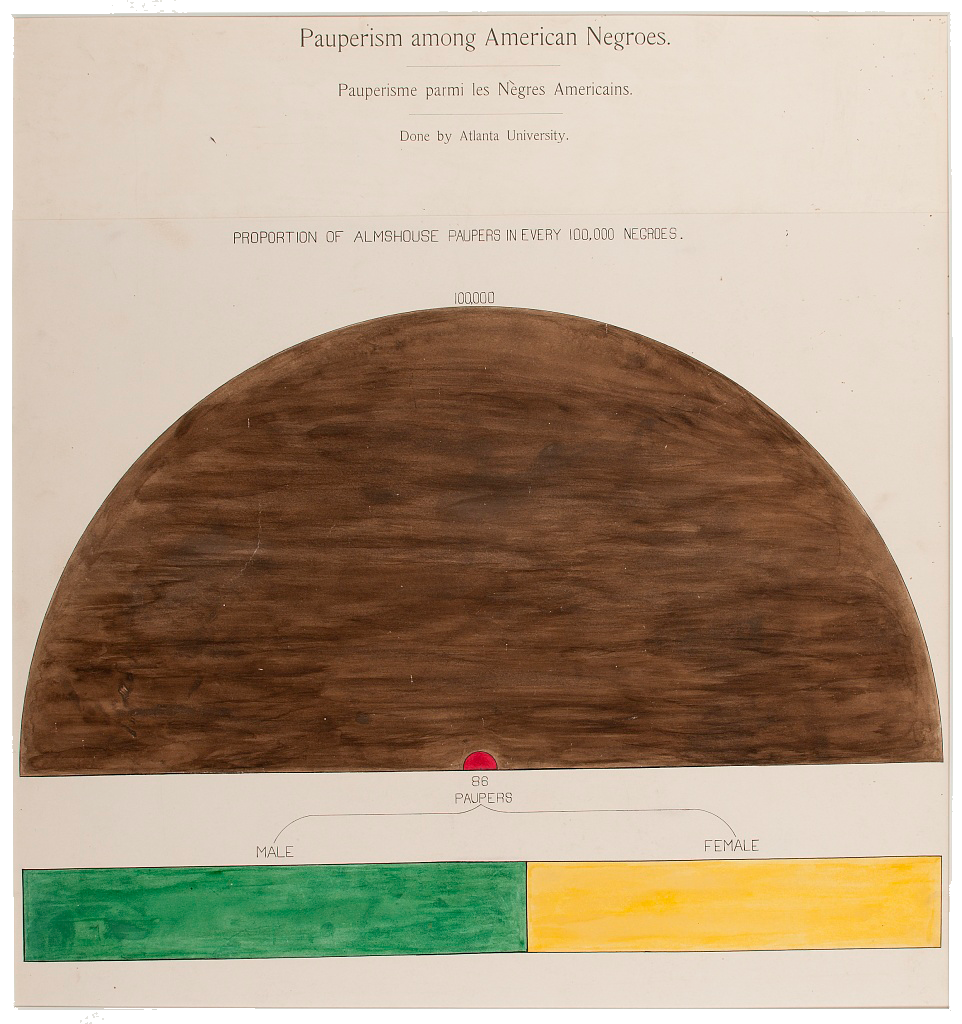 Pauperism among American Negroes.
Pauperisme parmi les Nègres Americains.
Done by Atlanta University.
PROPORTION OF ALMSHOUSE PAUPERS IN EVERY 100,000 NEGROES.
100,000
86
PAUPERS
MALE
FEMALE